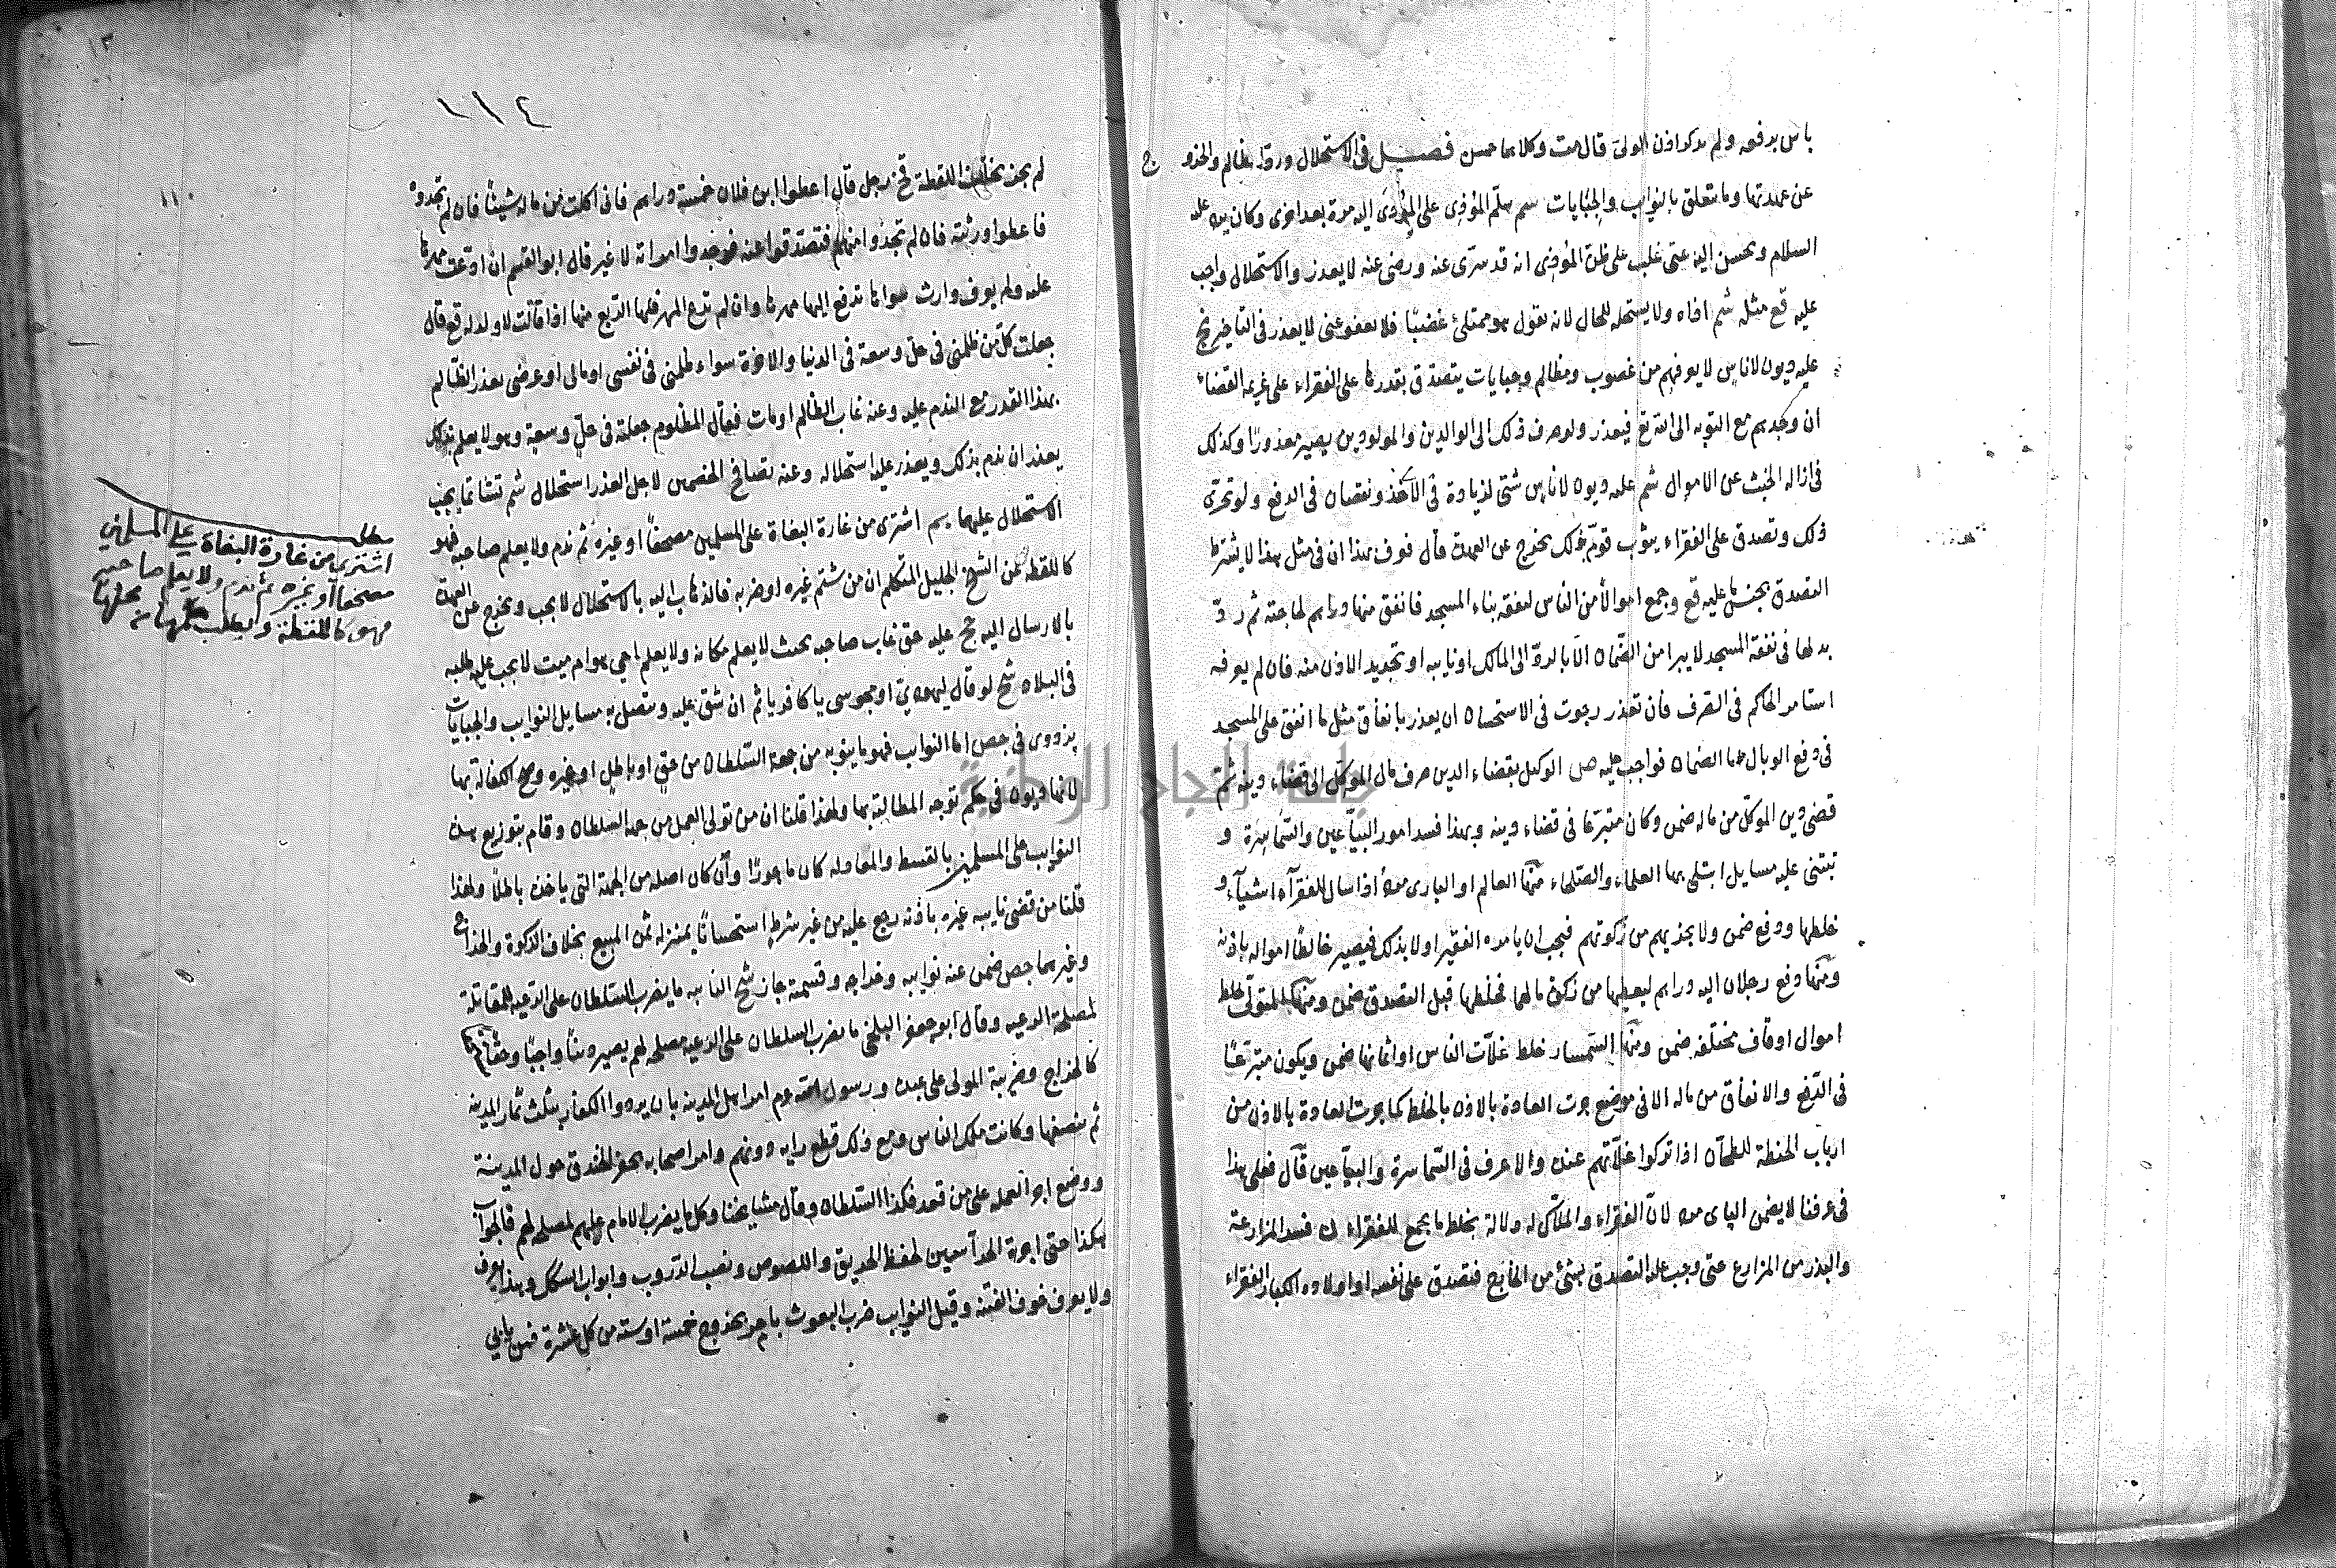 باس بدفعه ولم يذكر اذن المولى قال مت وكلاهما حسن فصل في الاستحلال ورد المظالم والخروج
عن عهدتها وما يتعلق بالنوايب والجنايات سم سلم المؤذي على المؤذى اليه مرة بعد اخرى وكان يرد عليه
السلام ويحسن اليه حتى غلب على ظن المؤذي انه قد سرى عنه ورضي عنه لا يعذر والاستحلال واجب
عليه قع مثله شم اذاه ولا يستحله للحال لانه يقول هو ممتلئ غضبًا فلا يعفو عني لا يعذر في التاخير نج
عليه ديون لاناس لا يعرفهم من غصوب ومظالم وجبايات يتصدق بقدرها على الفقراء على عزيمة القضاء
ان وجدهم مع التوبة الى الله تع فيعذر ولو صرف ذلك الى الوالدين والمولودين يصير معذورًا وكذلك
في ازالة الخبث عن الاموال شم عليه ديون لاناس شتى لزيادة في الاخذ ونقصان في الدفع ولو تحرى
ذلك وتصدق على الفقراء بثوب قوم بذلك يخرج عن العهدة قال فعرف بهذا ان في مثل هذا لا يشترط
التصدق بجنس ما عليه قع وجمع اموالا من الناس لنفقة بناء المسجد فانفق منها دراهم لحاجته ثم رد
بدلها في نفقة المسجد لا يبرا من الضمان الا بالرد الى المالك او نايبه او تجديد الاذن منه فان لم يعرفه
استامر الحاكم في الصرف فان تعذر رجوت في الاستحسان ان يعذر بانفاق مثل ما انفق على المسجد
في دفع الوبال اما الضمان فواجب عليه ص الوكيل بقضاء الدين صرف مال الموكل الى قضاء دينه ثم
قضى دين الموكل من ماله ضمن وكان متبرعا في قضاء دينه وبهذا فسد امور البياعين والسماسرة و
تبتنى عليه مسايل ابتلي بها العلماء والصلحاء منها العالم او البارى اذا سال للفقرآء اشيآء و
خلطها ودفع ضمن ولا يجزيهم من زكوتهم فيجب ان يامره الفقير اولا بذلك فيصير خالطًا امواله باذنه
ومنها دفع رجلان اليه دراهم ليعطيها من زكوة مالهما فخلطها قبل التصدق ضمن ومنها المتولي خلط
اموال اوقاف مختلفة ضمن ومنها السمسار خلط غلآت الناس او اثمانها ضمن ويكون متبرعًا
في الدفع والانفاق من ماله الا في موضع جرت العادة بالاذن بالخلط كما جرت العادة بالاذن من
ارباب الحنطة للطحان اذا تركوا غلآتهم عنده ولا عرف في السماسرة والبياعين قال فعلى هذا
في عرفنا لا يضمن لان الفقراء والملاك له دلالة بخلط ما يجمع للفقراء فسد المزارعة
والبذر من المزارع حتى وجب عليه التصدق بشئ من الخارج فتصدق على نفسه او اولاده الكبار الفقراء
١١٤
١١٠
لم يجز بخلاف اللقطة رجل قال اعطوا ابن فلان خمسة دراهم فاني اكلت من ماله شيئًا فان لم تجدوه
فاعطوا ورثته فان لم تجدوا منهم فتصدقوا عنه فوجدوا امراته لا غير قال ابو القسم ان ادعت مهرها
عليه ولم يعرف وارث سواها تدفع اليها مهرها وان لم تدع المهر فلها الربع منها اذا قالت لا ولد له قع قال
جعلت كل من ظلمني في حل وسعة في الدنيا والاخرة سواء ظلمني في نفسي او مالي او عرضي يعذر الظالم
بهذا القدر مع الندم عليه وعنه غاب الظالم او مات فقال المظلوم جعلته في حل وسعة وهو لا يعلم بذلك
يعذر ان ندم بذلك ويعذر عليه استحلاله وعنه تصافح الخصمين لاجل العذر استحلال شم تشاتما يجب
الاستحلال عليهما سم اشترى من غارة البغاة على المسلمين مصحفًا او غيره ثم ندم ولا يعلم صاحبه فهو
كاللقطة عن الشيخ الجليل المتكلم ان من شتم غيره او ضربه فالذهاب اليه بالاستحلال لا يجب ويخرج عن العهدة
بالارسال اليه حج عليه حق غاب صاحبه بحيث لا يعلم مكانه ولا يعلم احي هو ام ميت لا يجب عليه طلبه
في البلاد شح لو قال ليهودي او مجوسي يا كافر ياثم ان شق عليه ويتصل به مسايل النوايب والجبايات
بزدوى في جص اما النوايب فهو ما ينوبه من جهة السلطان من حق او باطل او غيره وصح الكفالة بها
لانها ديون في حكم توجه المطالبة بها ولهذا قلنا ان من تولى العمل من جهة السلطان وقام بتوزيع هذه
النوايب على المسلمين بالقسط والمعادلة كان ماجورًا وان كان اصله من الجهة التي ياخذ باطلًا ولهذا
قلنا من قضى نايبة غيره باذنه رجع عليه من غير شرط استحسانًا بمنزلة ثمن المبيع بخلاف الزكوة والخراج
وغيرهما جص ضمن عنه نوايبه وخراجه وقسمته جاز شح النايبة ما يضرب السلطان على الرعية للمقاتلة
لمصلحة الرعية وقال ابو جعفر البلخي ما يضرب السلطان على الرعية مصلحة لهم يصير دينًا واجبًا وحقًا
كالخراج وضريبة المولى على عبده ورسول الله عم امر اهل المدينة بان يردوا الكفار بثلث ثمار المدينة
ثم بنصفها وكانت ملك الناس ومع ذلك قطع رايه دونهم وامر اصحابه بحفر الخندق حول المدينة
ووضع اجر العملة على من قعد فكذا السلطان وقال مشايخنا وكل ما يضرب الامام عليهم لمصلحة لهم فالجواب
هكذا حتى اجرة الحراسين لحفظ الطريق واللصوص ونصب الدروب وابواب السكك وبهذا يعرف
ولا يعرف خوف الفتنة وقيل النوايب ضرب البعوث باجر يخرج خمسة او ستة من كل عشرة فمن يابى
مطلب
اشترى من غارة البغاة على المسلمين
مصحفا او غيره ثم ندم ولا يعلم صاحبه
فهو كاللقطة